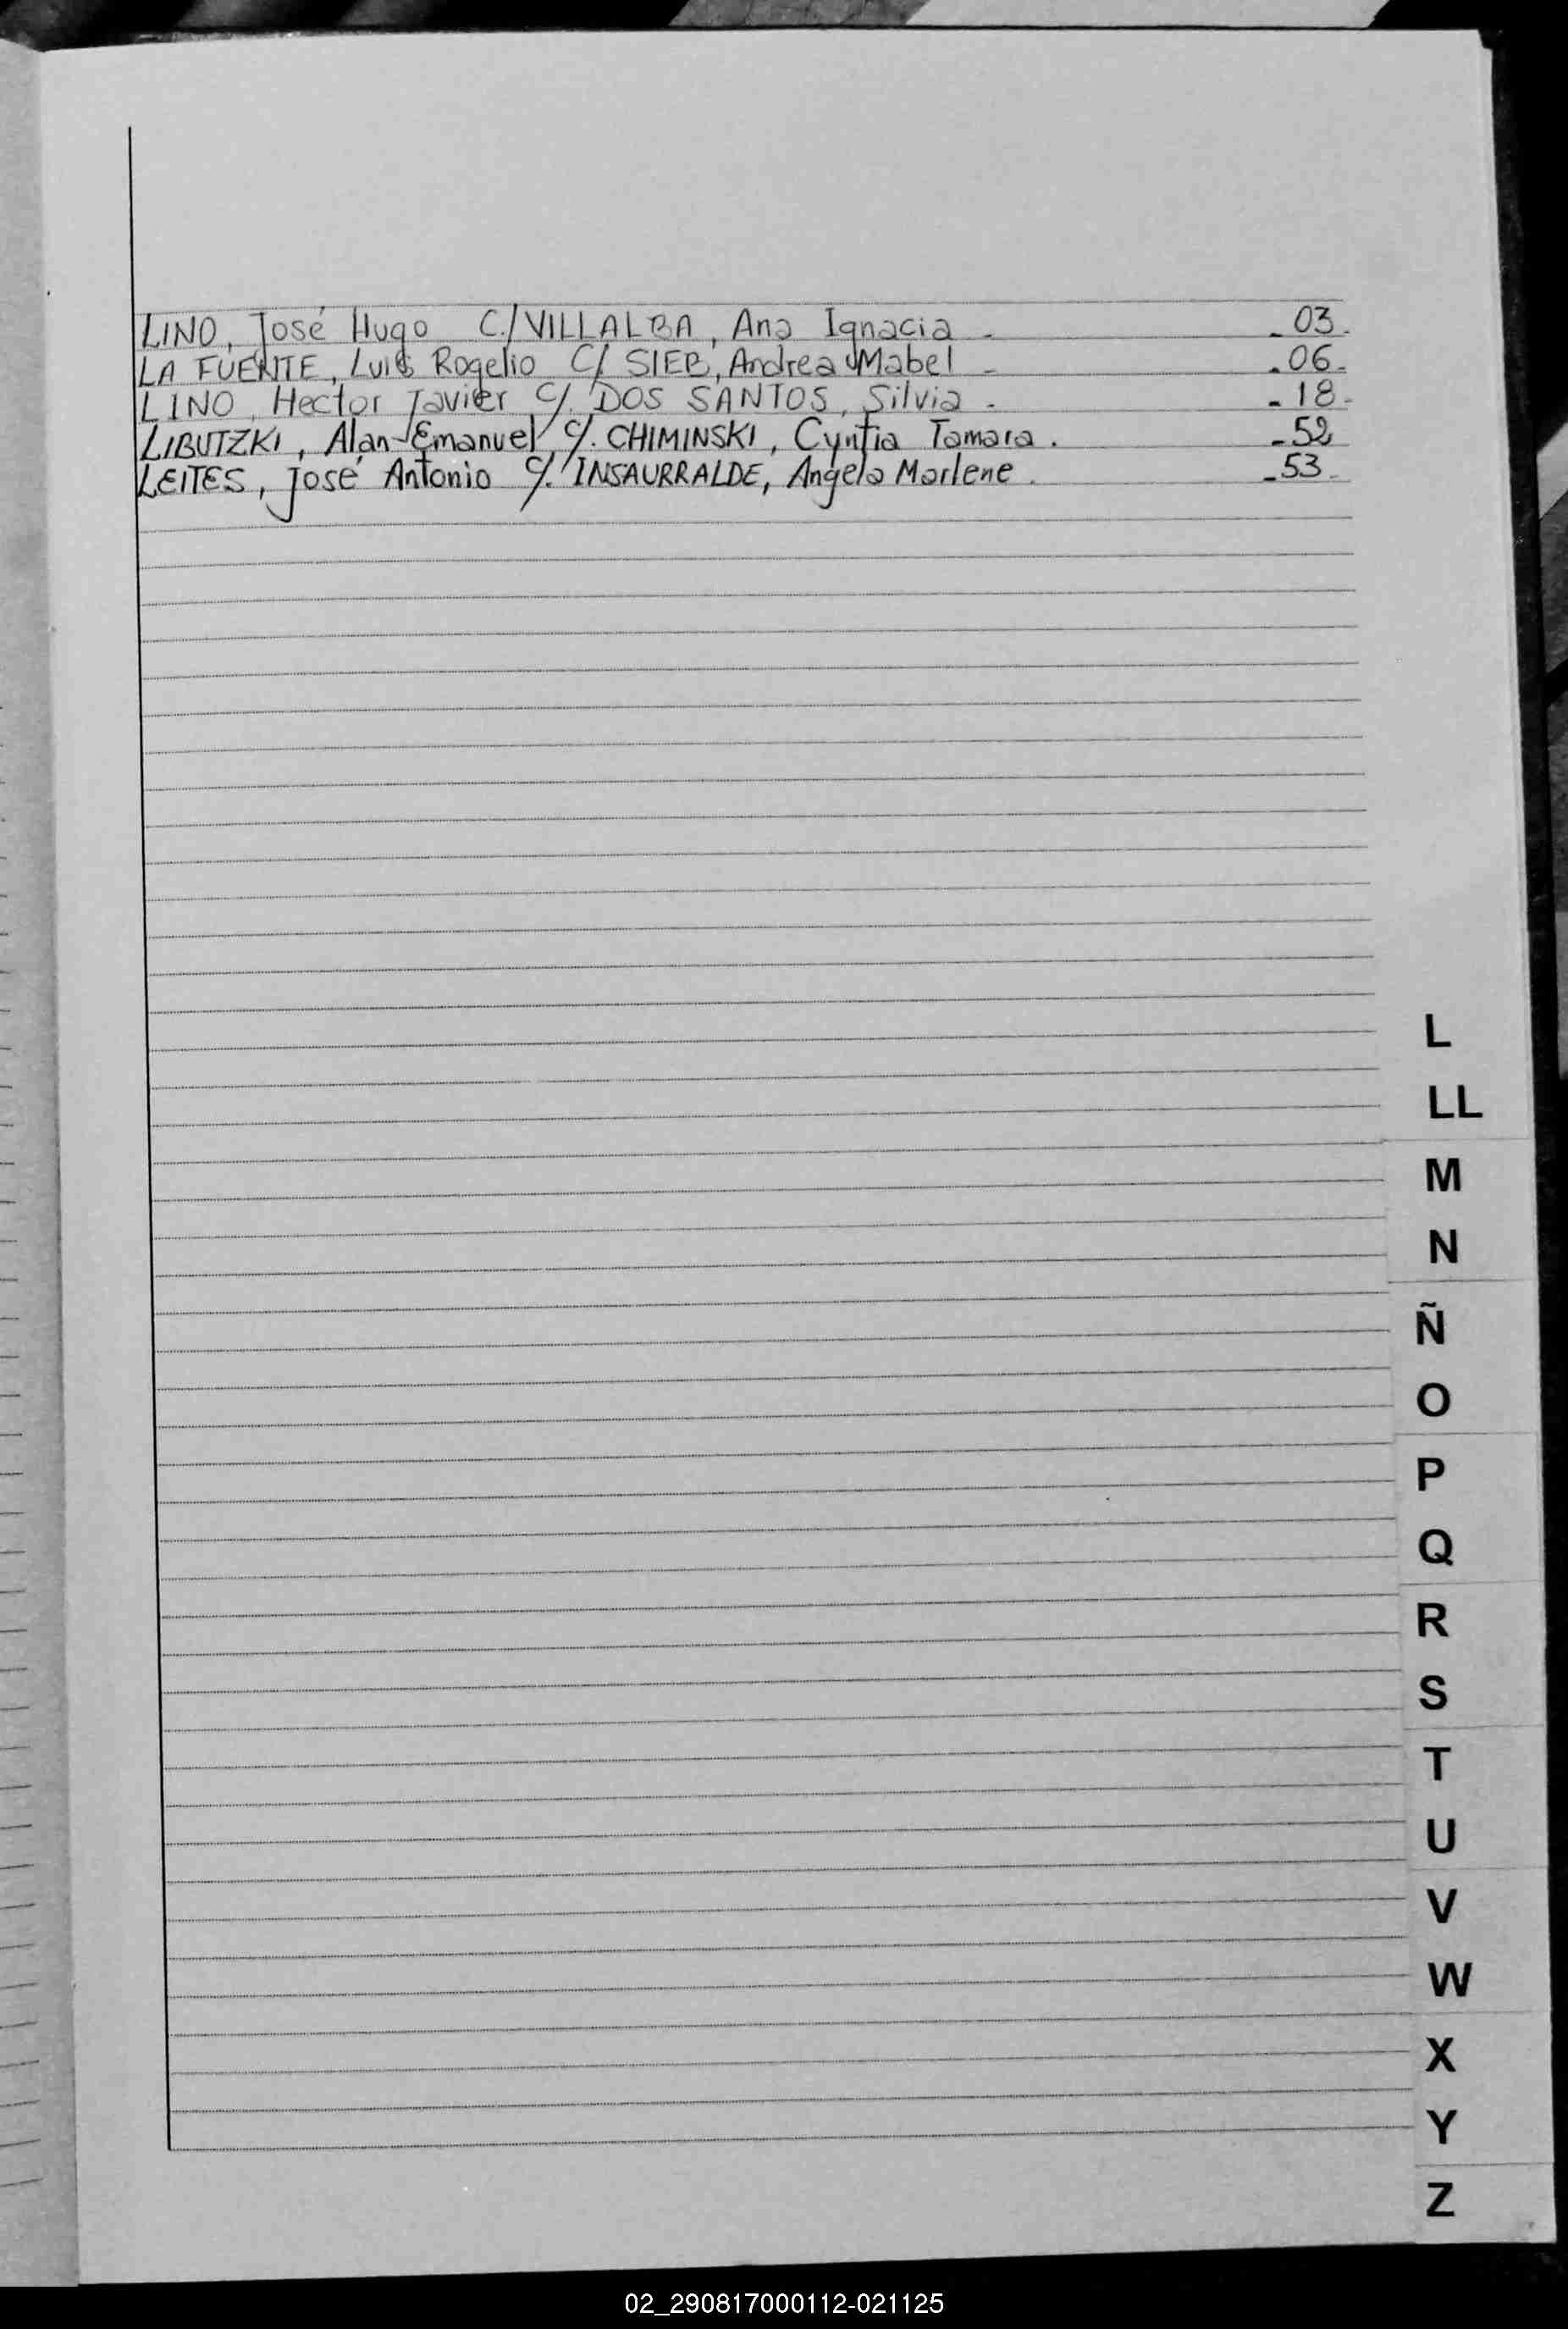 LINO, José Hugo C./ VILLALBA, Ana Ignacia - - 03.
LA FUENTE, Luis Rogelio C/ SIEB, Andrea Mabel - - 06.
LINO, Hector Javier C/. DOS SANTOS, Silvia - - 18.
LIBUTZKI, Alan Emanuel C/. CHIMINSKI, Cyntia Tamara. - 52
LEITES, José Antonio C/. INSAURRALDE, Angela Marlene. - 53.
L
LL
M
N
Ñ
O
P
Q
R
S
T
U
V
W
X
Y
Z
02_290817000112-021125